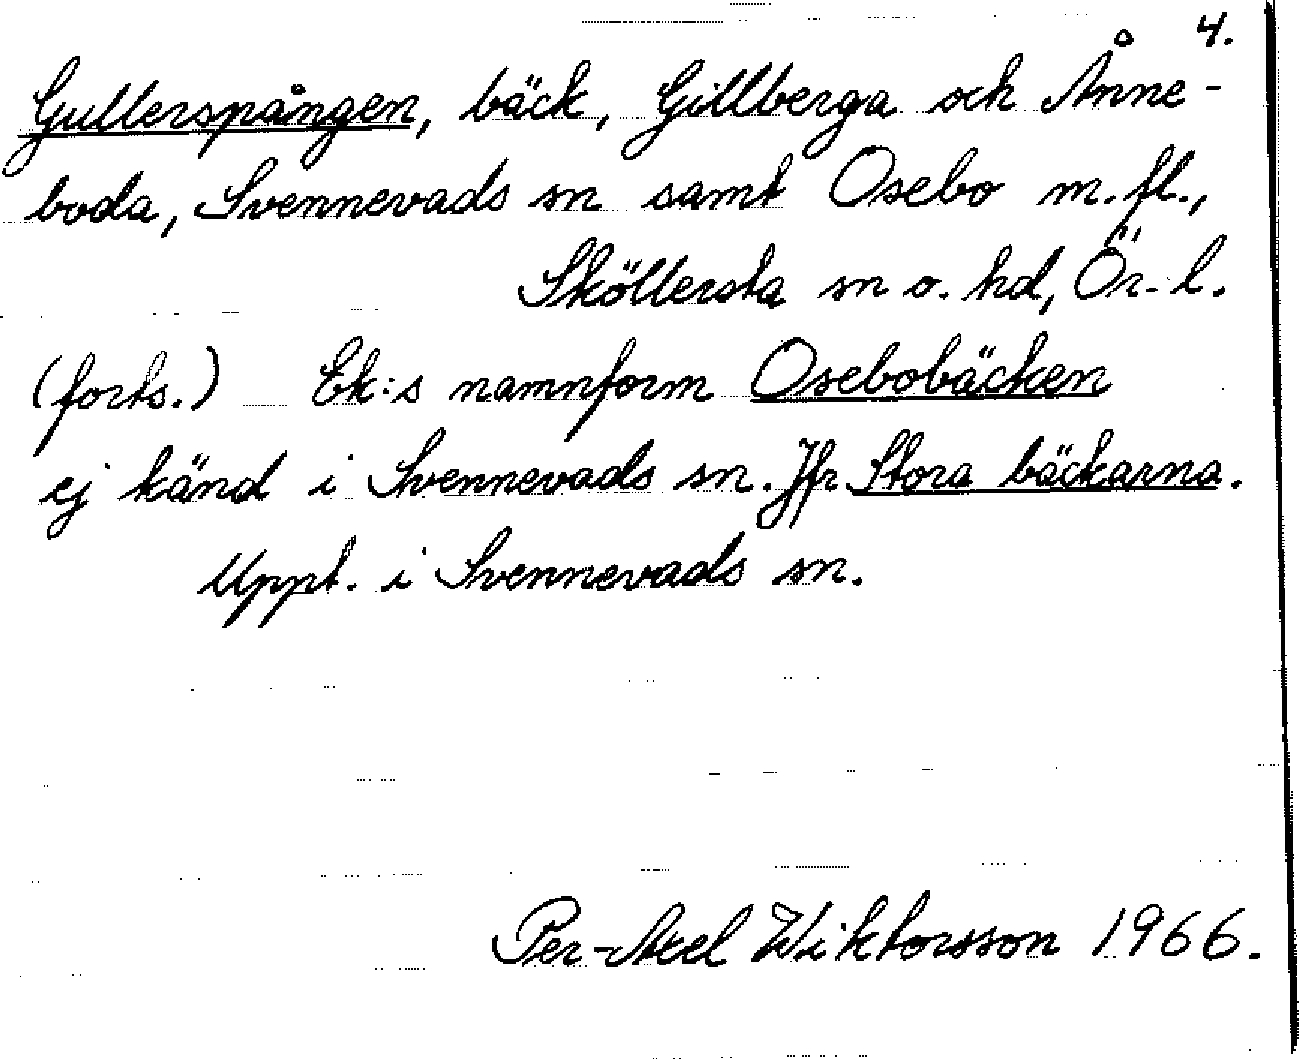 4.
Gullerspången, bäck, Gillberga och Ånne-
boda, Svennevads sn samt Osebo m. fl.,
Sköllersta sn o. hd, Ör. l.
(forts.) Ek:s namnform Osebobäcken
ej känd i Svennevads sn. Jfr Stora bäckarna.
Uppt. i Svennevads sn.
Per-Axel Wiktorsson 1966.